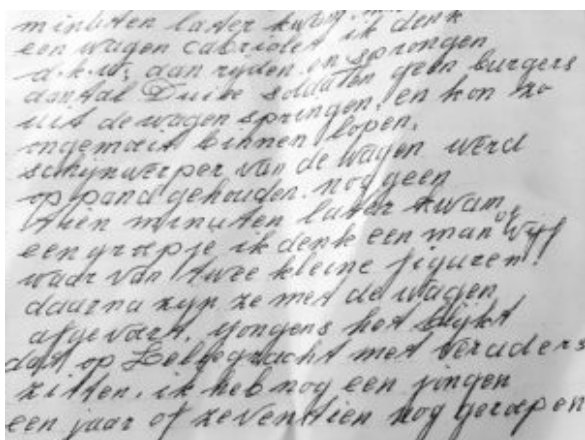 minuten later kwam
een wagen cabriolet ik denk
d.k.w; aan rijden en sprongen
aantal Duitse soldaten geen burgers
uit de wagen springen; en kon zo
ongemoeit binnen lopen.
schijnwerper van de wagen werd
op pand gehouden. nog geen
tien minuten later kwam
een groepje ik denk een man of vijf
waar van twee kleine figuren!
daarna zijn ze met de wagen
afgevoert. yongens het blijkt
dat op Leliegracht met veraders
zitten. ik heb nog een jongen
een jaar of zeventien nog geroepen